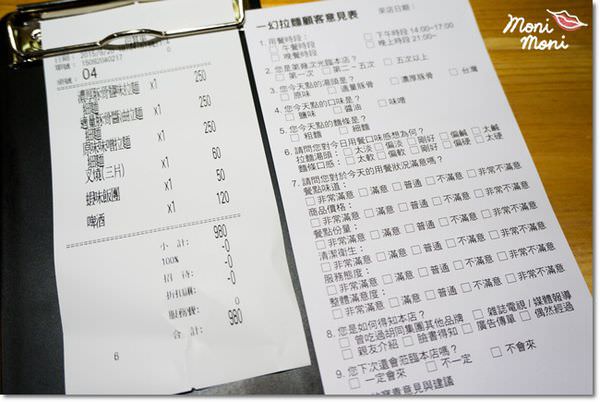 04
x1 250
細麵
x1 250
細麵
x1 250
細麵
叉燒(三片) x1 60
x1 50
啤酒 x1 120
小 計: 980
-0
-0
-0
0
合 計: 980
6
一幻拉麵顧客意見表 來店日期:
1. 用餐時段: □ 下午時段 14:00~17:00
□ 午餐時段 □ 晚上時段 21:00~
□ 晚餐時段
2. 您是第幾次光臨本店?
□ 第一次 □ 第二~五次 □ 五次以上
3. 您今天點的湯頭是?
□ 原味 □ 適量豚骨 □ 濃厚豚骨 □ 台灣
4. 您今天點的口味是?
□ 鹽味 □ 醬油 □ 味噌
5. 您今天點的麵條是?
□ 粗麵 □ 細麵
6. 請問您對今日用餐口味感想為何?
拉麵湯頭: □ 太淡 □ 偏淡 □ 剛好 □ 偏鹹 □ 太鹹
麵條口感: □ 太軟 □ 偏軟 □ 剛好 □ 偏硬 □ 太硬
7. 請問您對於今天的用餐狀況滿意嗎?
餐點味道:
□ 非常滿意 □ 滿意 □ 普通 □ 不滿意 □ 非常不滿意
商品價格:
□ 非常滿意 □ 滿意 □ 普通 □ 不滿意 □ 非常不滿意
餐點份量:
□ 非常滿意 □ 滿意 □ 普通 □ 不滿意 □ 非常不滿意
清潔衛生:
□ 非常滿意 □ 滿意 □ 普通 □ 不滿意 □ 非常不滿意
服務態度:
□ 非常滿意 □ 滿意 □ 普通 □ 不滿意 □ 非常不滿意
整體滿意度:
□ 非常滿意 □ 滿意 □ 普通 □ 不滿意 □ 非常不滿意
8. 您是如何得知本店?
□ 曾吃過胡同集團其他品牌 □ 雜誌電視 / 媒體報導
□ 親友介紹 □ 臉書得知 □ 廣告傳單 □ 偶然經過
9. 您下次還會蒞臨本店嗎?
□ 一定會來 □ 不一定 □ 不會來
寶貴意見與建議
Moni
Moni